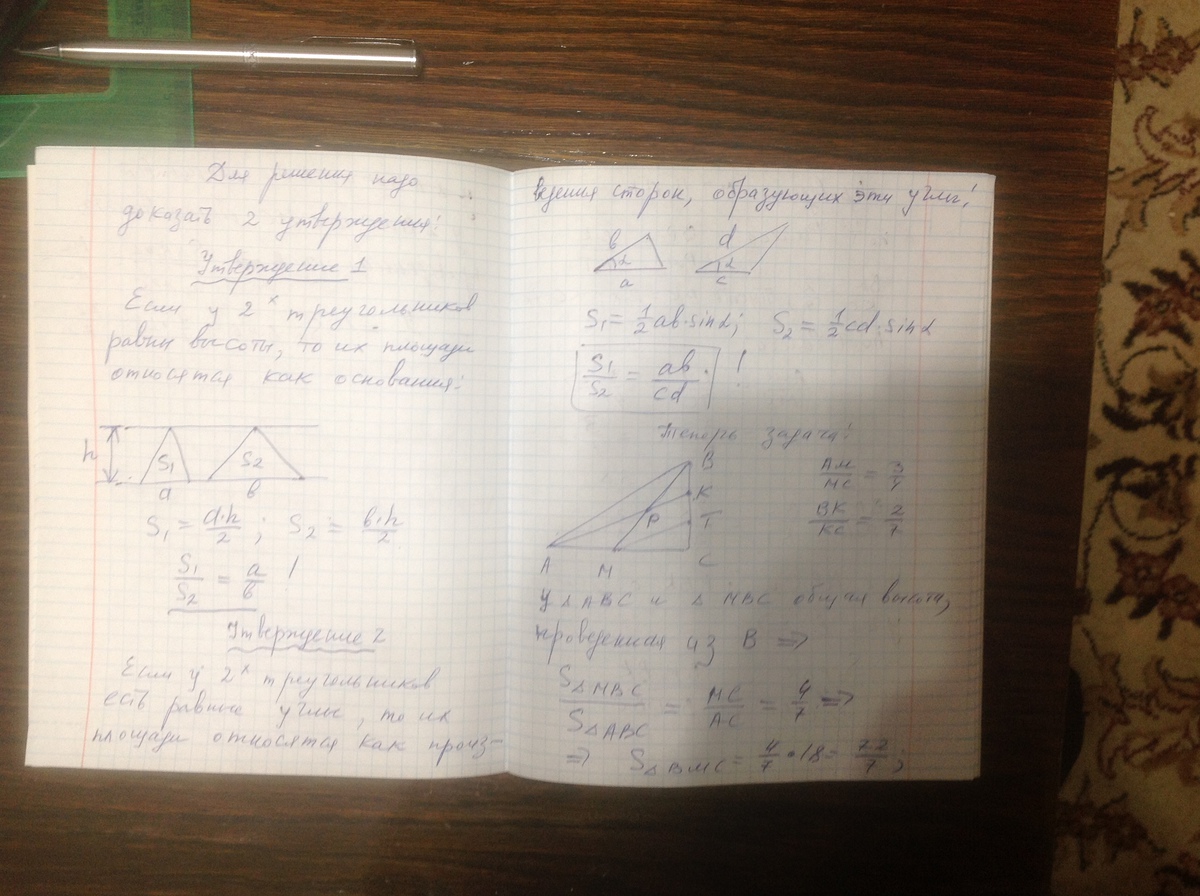 Для решения надо
доказать 2 утверждения:
Утверждение 1
Если у 2ˣ треугольников
равны высоты, то их площади
относятся как основания:
h S₁ S₂
a в
S₁ = a·h/2 ; S₂ = в·h/2
S₁/S₂ = a/в !
Утверждение 2
Если у 2ˣ треугольников
есть равные углы, то их
площади относятся как произ-
ведения сторон, образующих эти углы!
в α a d α c
S₁ = 1/2 aв·sinα; S₂ = 1/2 cd·sinα
S₁/S₂ = aв/cd . !
Теперь задача:
B K P T A M C
AM/MC = 3/4
BK/KC = 2/7
У △ABC и △MBC общая высота,
проведенная из B =>
S△MBC/S△ABC = MC/AC = 4/7 =>
=> S△BMC = 4/7 · 18 = 72/7 ;